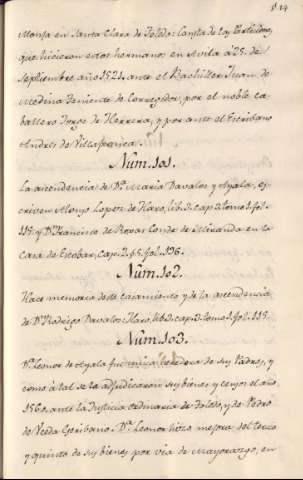 Monja en Santa Clara de Toledo: Consta de las Particiones,
que hicieron estos hermanos en Avila a 25. de
Septiembre año 1521. ante el Bachiller Juan de
Medina Teniente de Corregidor, por el noble ca-
ballero Jorge de Herrera, y por ante el Escribano
Andres de Villafranca.
Núm. 101.
La ascendencia de Dª. Maria Davalos y Ayala, es-
criven Alonso Lopez de Haro, lib. 2. cap. tomo 1. fol.
115. y Dn. Francisco de Rosas Conde de Miranda en la
Casa de Escobar, Cap. 2. §5. fol. 136.
Núm. 102.
Hace memoria de este casamiento y de la ascendencia
de Dn. Rodrigo Davalos: Haro, lib. 2. cap. tomo 1. fol. 115.
Núm. 103.
Dª. Leonor de Ayala fue unica heredera de sus Padres, y
como à tal se la adjudicaron sus bienes y censos el año
1560. ante la Justicia ordinaria de Toledo, y de Pedro
de Uceda Escribano. Dª. Leonor hizo mejora del tercio
y quinto de sus bienes por via de Mayorazgo, en